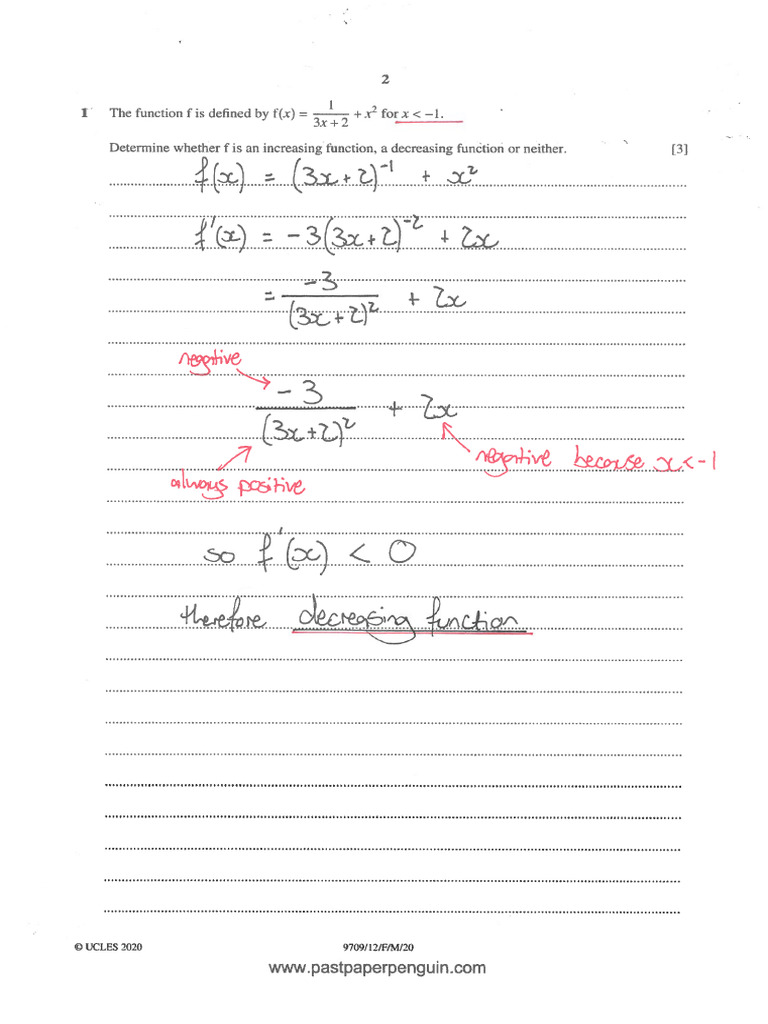 2
1 The function f is defined by f(x) = 1/(3x + 2) + x² for x < −1.
Determine whether f is an increasing function, a decreasing function or neither. [3]
f(x) = (3x+2)⁻¹ + x²
f'(x) = −3(3x+2)⁻² + 2x
= −3/(3x+2)² + 2x
negative
−3/(3x+2)² + 2x
negative because x<-1
always positive
so f'(x) < 0
therefore decreasing function
© UCLES 2020 9709/12/F/M/20
www.pastpaperpenguin.com